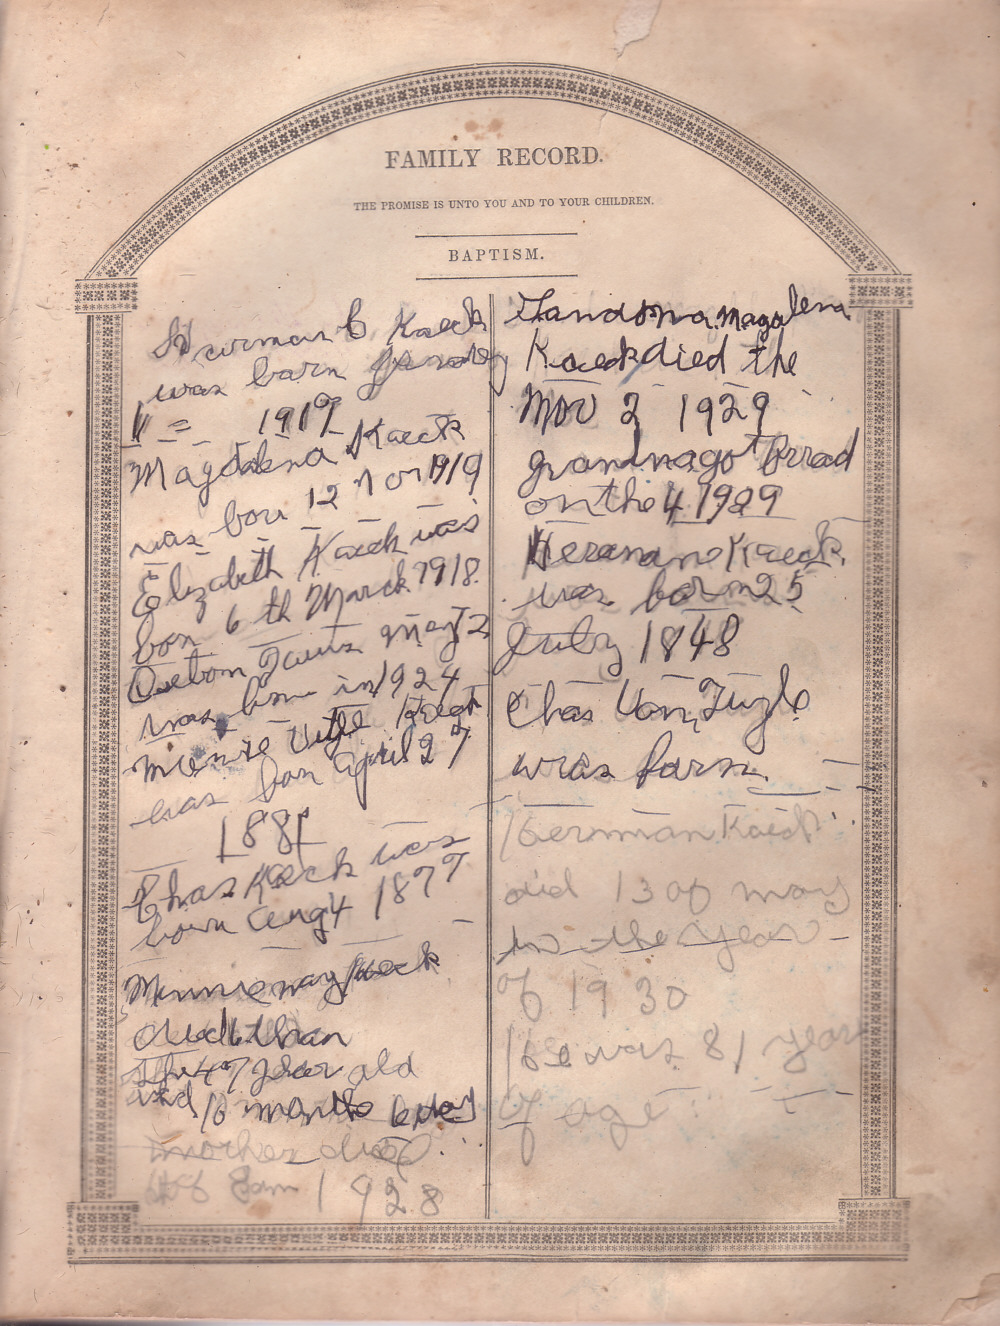 FAMILY RECORD.
THE PROMISE IS UNTO YOU AND TO YOUR CHILDREN.
BAPTISM.
C Kaeck
was barn
1919
Magdalena Kaeck
was born 12 1919
Elizabeth Kaeck was
bon 6 th March 1918
May 12
was in 1924
Minnie
was bon April 27
1881
Chas Kaeck was
born Aug 4 1877
Minnie may Kaeck
died
47 year old
and 10 months 6 day
mother died
1928
Magalena
Kaeck died the
Nov 2 1929
on the 4 1929
Kaeck
was born 25
July 1848
Chas Von Tuyle
was born
Herman Kaeck
died 13 of may
in the year
of 1930
He was 81 years
of age